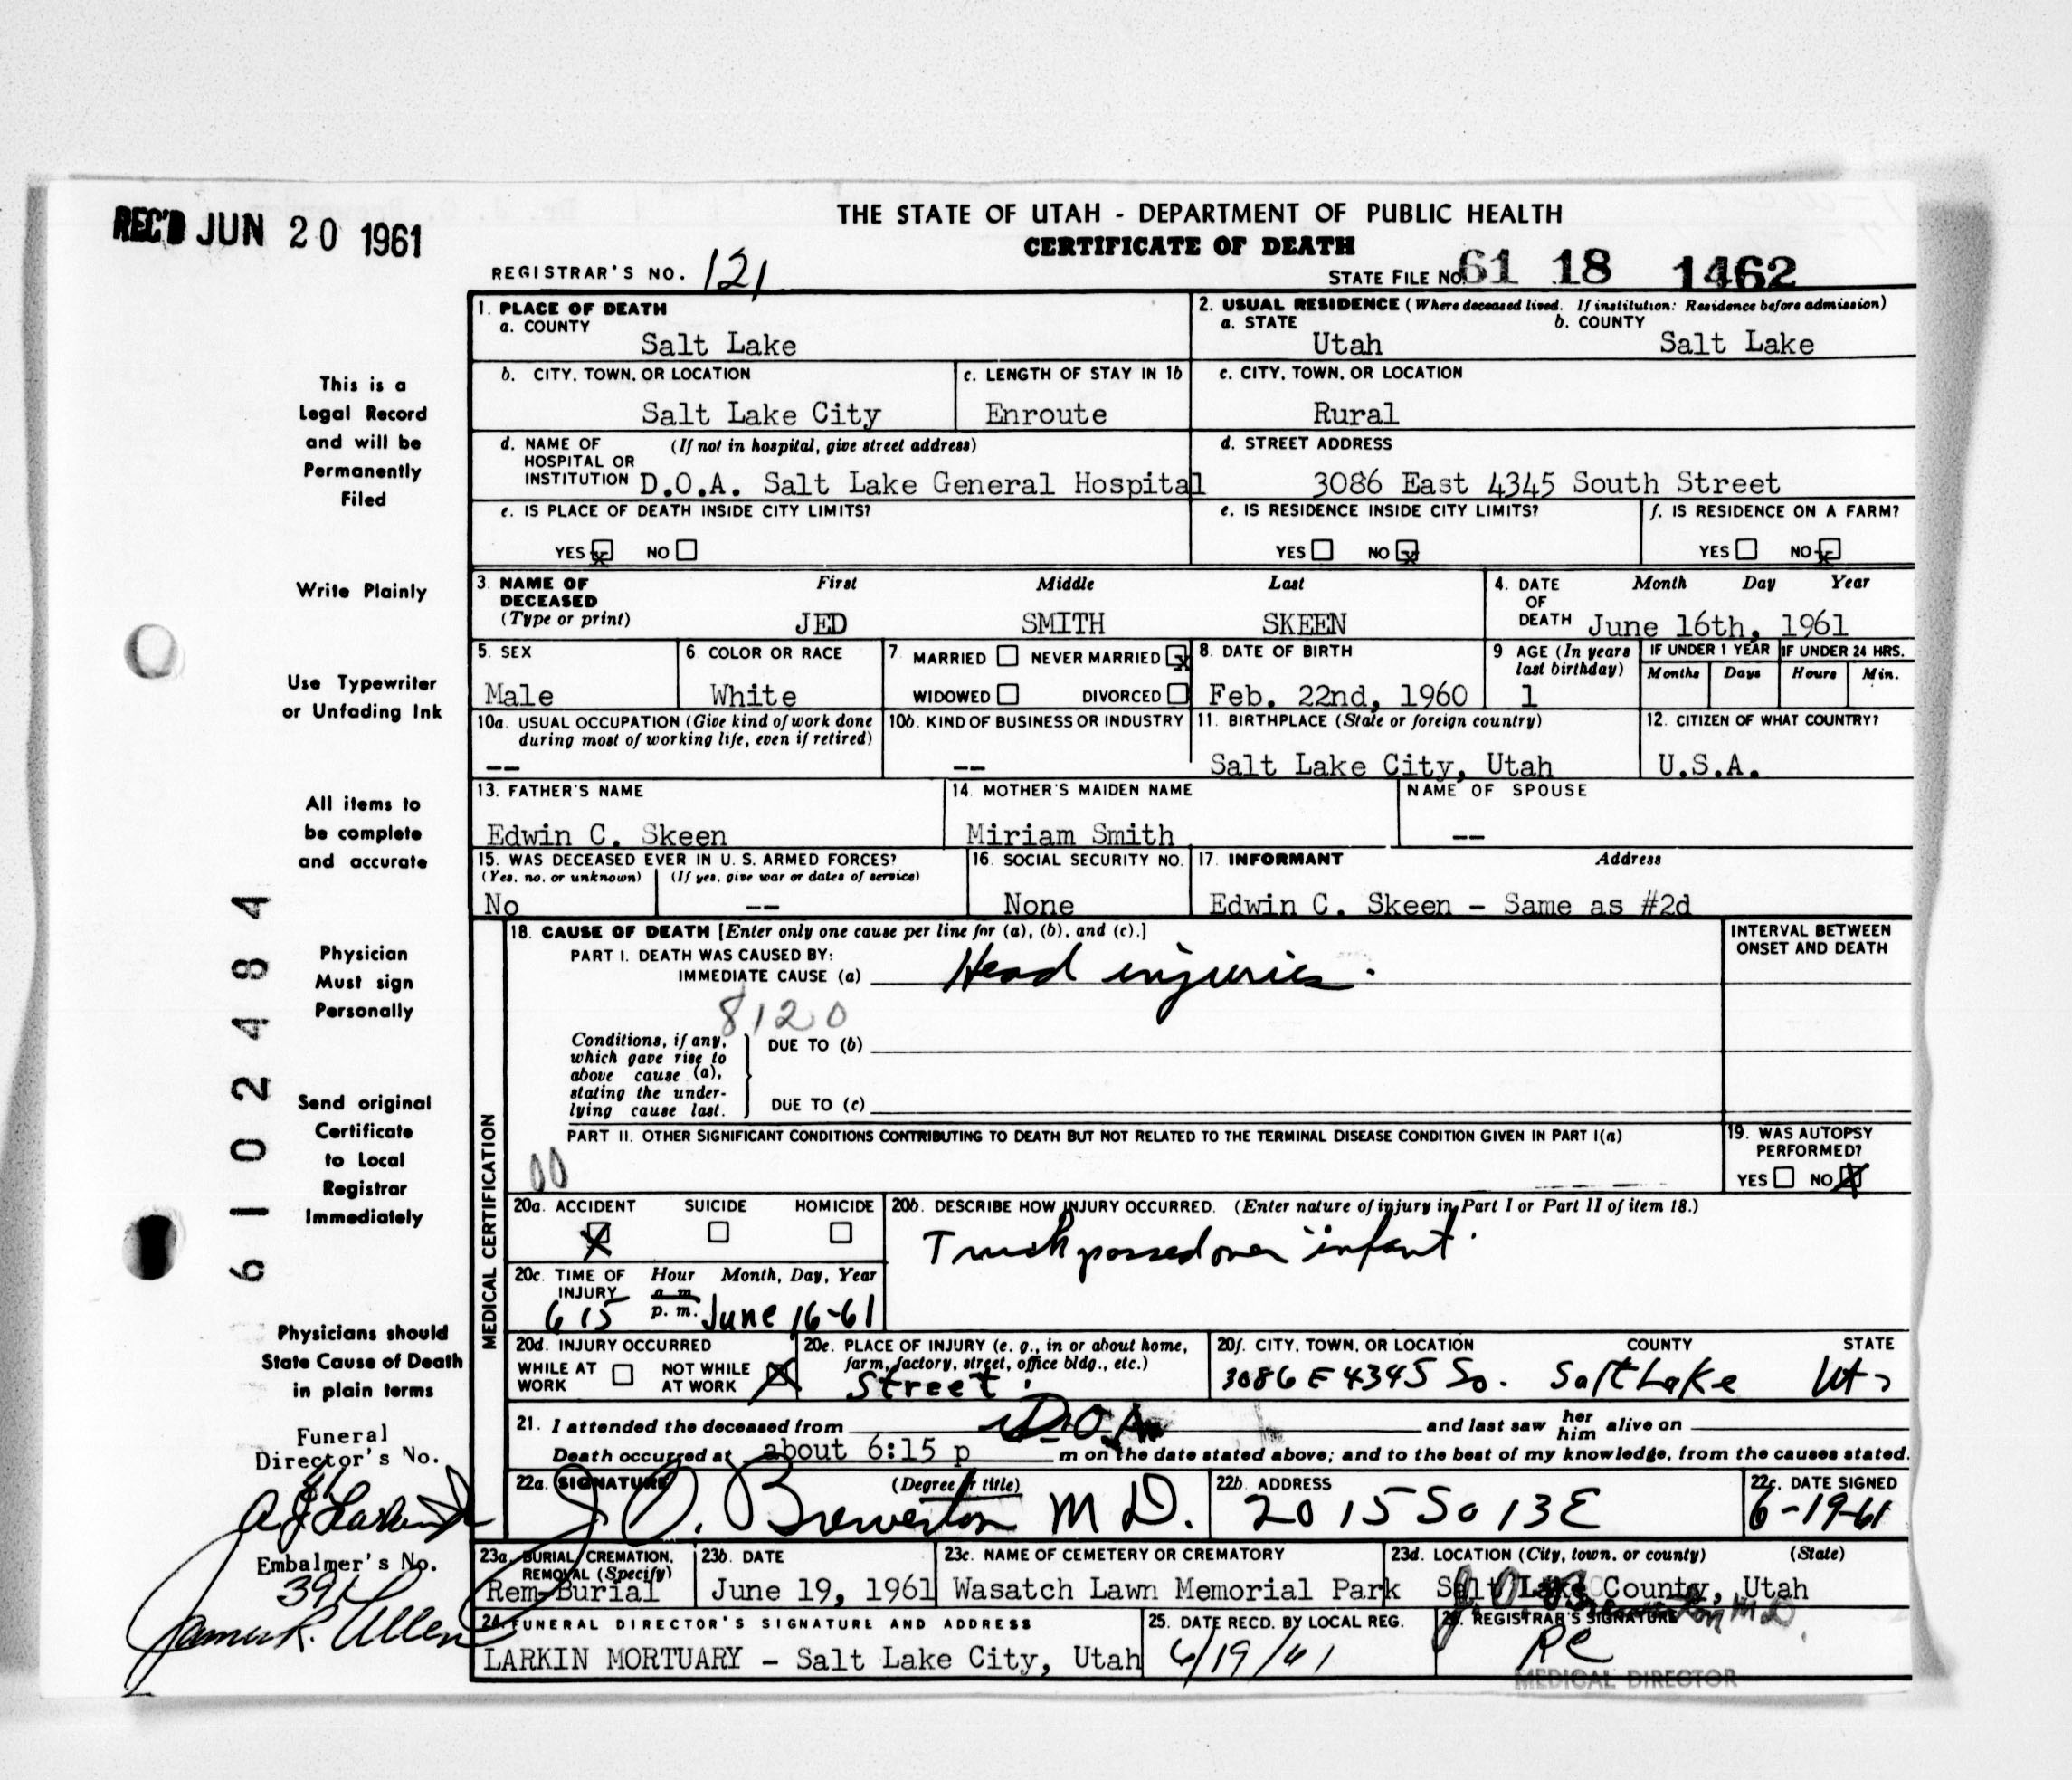 REC'D JUN 20 1961
THE STATE OF UTAH - DEPARTMENT OF PUBLIC HEALTH
CERTIFICATE OF DEATH
REGISTRAR'S NO. 121
STATE FILE NO. 61 18 1462
This is a
Legal Record
and will be
Permanently
Filed
Write Plainly
Use Typewriter
or Unfading Ink
All items to
be complete
and accurate
Physician
Must sign
Personally
Send original
Certificate
to Local
Registrar
Immediately
Physicians should
State Cause of Death
in plain terms
Funeral
Director's No.
Embalmer's No.
391
James R. Allen
6102484
1. PLACE OF DEATH
a. COUNTY
Salt Lake
2. USUAL RESIDENCE (Where deceased lived. If institution: Residence before admission)
a. STATE b. COUNTY
Utah Salt Lake
b. CITY, TOWN, OR LOCATION
Salt Lake City
c. LENGTH OF STAY IN 1b
Enroute
c. CITY, TOWN, OR LOCATION
Rural
d. NAME OF (If not in hospital, give street address)
HOSPITAL OR
INSTITUTION D.O.A. Salt Lake General Hospital
d. STREET ADDRESS
3086 East 4345 South Street
e. IS PLACE OF DEATH INSIDE CITY LIMITS?
YES x NO
e. IS RESIDENCE INSIDE CITY LIMITS?
YES NO x
f. IS RESIDENCE ON A FARM?
YES NO x
3. NAME OF First Middle Last
DECEASED
(Type or print) JED SMITH SKEEN
4. DATE Month Day Year
OF
DEATH June 16th, 1961
5. SEX
Male
6. COLOR OR RACE
White
7. MARRIED NEVER MARRIED x
WIDOWED DIVORCED
8. DATE OF BIRTH
Feb. 22nd, 1960
9. AGE (In years
last birthday)
1
IF UNDER 1 YEAR IF UNDER 24 HRS.
Months Days Hours Min.
10a. USUAL OCCUPATION (Give kind of work done
during most of working life, even if retired)
--
10b. KIND OF BUSINESS OR INDUSTRY
--
11. BIRTHPLACE (State or foreign country)
Salt Lake City, Utah
12. CITIZEN OF WHAT COUNTRY?
U.S.A.
13. FATHER'S NAME
Edwin C. Skeen
14. MOTHER'S MAIDEN NAME
Miriam Smith
NAME OF SPOUSE
--
15. WAS DECEASED EVER IN U. S. ARMED FORCES?
(Yes, no, or unknown) (If yes, give war or dates of service)
No --
16. SOCIAL SECURITY NO.
None
17. INFORMANT Address
Edwin C. Skeen - Same as #2d
MEDICAL CERTIFICATION
18. CAUSE OF DEATH [Enter only one cause per line for (a), (b), and (c).]
INTERVAL BETWEEN
ONSET AND DEATH
PART I. DEATH WAS CAUSED BY:
IMMEDIATE CAUSE (a) Head injuries.
8120
Conditions, if any,
which gave rise to
above cause (a),
stating the under-
lying cause last.
DUE TO (b)
DUE TO (c)
PART II. OTHER SIGNIFICANT CONDITIONS CONTRIBUTING TO DEATH BUT NOT RELATED TO THE TERMINAL DISEASE CONDITION GIVEN IN PART I(a)
00
19. WAS AUTOPSY
PERFORMED?
YES NO X
20a. ACCIDENT SUICIDE HOMICIDE
X
20b. DESCRIBE HOW INJURY OCCURRED. (Enter nature of injury in Part I or Part II of item 18.)
Truck passed over infant.
20c. TIME OF Hour Month, Day, Year
INJURY a. m.
6 15 p. m. June 16-61
20d. INJURY OCCURRED
WHILE AT WORK NOT WHILE AT WORK X
20e. PLACE OF INJURY (e. g., in or about home,
farm, factory, street, office bldg., etc.)
Street.
20f. CITY, TOWN, OR LOCATION COUNTY STATE
3086 E 4345 So. Salt Lake Ut
21. I attended the deceased from D.O.A. and last saw her him alive on
Death occurred at about 6:15 p m on the date stated above; and to the best of my knowledge, from the causes stated.
22a. SIGNATURE (Degree or title)
J O. Brewerton M D.
22b. ADDRESS
2015 So 13 E
22c. DATE SIGNED
6-19-61
23a. BURIAL, CREMATION,
REMOVAL (Specify)
Rem-Burial
23b. DATE
June 19, 1961
23c. NAME OF CEMETERY OR CREMATORY
Wasatch Lawn Memorial Park
23d. LOCATION (City, town, or county) (State)
Salt Lake County, Utah
24. FUNERAL DIRECTOR'S SIGNATURE AND ADDRESS
LARKIN MORTUARY - Salt Lake City, Utah
25. DATE RECD. BY LOCAL REG.
6/19/61
26. REGISTRAR'S SIGNATURE
RC
MEDICAL DIRECTOR